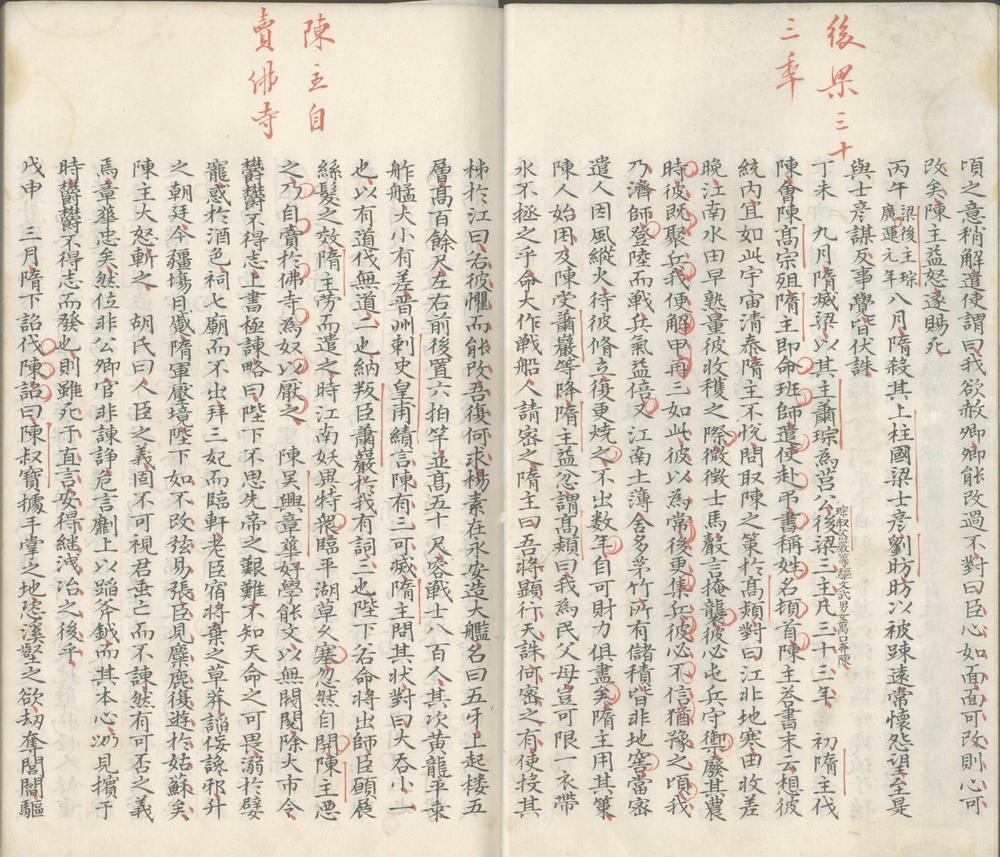 後梁三十
三年
頃之意稍解遣使謂曰我欲赦卿卿能改過不對曰臣心如面面可改則心可
改矣陳主益怒遂賜死
丙午梁後主琮廣運元年八月隋殺其上柱國梁士彦劉昉昉以被踈遠常懷怨望至是
與士彦謀反事覺皆伏誅
丁未 九月隋滅梁以其主蕭琮為莒公琮叔父巖等驅文武男女萬口奔陳後梁三主凡三十三年 初隋主伐
陳會陳高宗殂隋主即命班師遣使赴弔書稱姓名頓首陳主荅書末云想彼
統內宜如此宇宙清泰隋主不悅問取陳之策於高熲對曰江非地寒田收差
晚江南水田早熟量彼收穫之際微徵士馬聲言掩襲彼必屯兵守禦廢其農
時彼既聚兵我便解甲再三如此彼以為常後更集兵彼必不信猶豫之頃我
乃濟師登陸而戰兵氣益倍又江南土薄舍多茅竹所有儲積皆非地窖當密
遣人因風縱火待彼脩立復更燒之不出数年自可財力俱盡矣隋主用其策
陳人始困及陳受蕭巖等降隋主益忿謂高熲曰我為民父母豈可限一衣帶
水不拯之乎命大作戰船人請密之隋主曰吾將顯行天誅何密之有使投其
陳主自
賣佛寺
柹於江曰若彼懼而能改吾復何求楊素在永安造大艦名曰五牙上起樓五
層高百餘尺左右前後置六拍竿並高五十尺容戰士八百人其次黃龍平乗
舴艋大小有差晋州刺史皇甫績言陳有三可滅隋主問其狀對曰大吞小一
也以有道伐無道二也納叛臣蕭巖於我有詞三也陛下若命將出師臣願展
絲髮之效隋主勞而遣之時江南妖異特衆臨平湖草久塞忽然自開陳主悪
之乃自賣於佛寺為奴以厭之 陳吴興章華好學能文以無閥閱除大市令
鬱鬱不得志上書極諫略曰陛下不思先帝之艱難不知天命之可畏溺於嬖
寵惑於酒色祠七廟而不出拜三妃而臨軒老臣宿將棄之草莽謟佞讒邪升
之朝廷今疆埸日蹙隋軍壓境陛下如不改弦易張臣見麋鹿復遊於姑蘇矣
陳主大怒斬之 胡氏曰人臣之義固不可視君垂亡而不諫然有可否之義
焉章華忠矣然位非公卿官非諫諍危言劘上以蹈斧鉞而其本心仍見擯于
時鬱鬱不得志而發也則雖死于直言安得継洩冶之後乎
戊申 三月隋下詔伐陳詔曰陳叔寶據手掌之地恣溪壑之欲劫奪閭閻驅